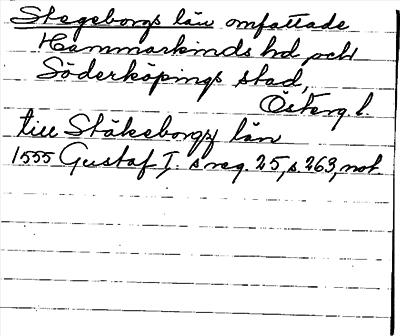 Stegeborgs län omfattade
Hammarkinds hd och
Söderköpings stad,
Österg l.
till Stäkeborgx län
1555 Gustaf I:s reg. 25, s. 263, not